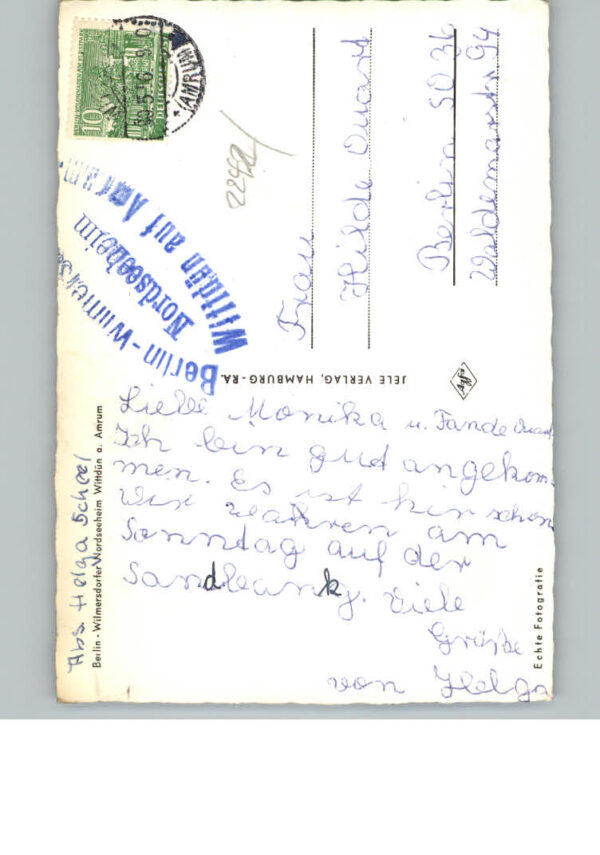 Abs. Helga Scheel
Berlin-Wilmersdorfer Nordseeheim Wittdün a. Amrum
Liebe Monika u. Tande Quast
Ich bin gud angekom-
men. Es ist hir schon
Wir wahren am
Sonntag auf der
Sandbank. Viele
Grüße
von Helga
Echte Fotografie
JELE VERLAG, HAMBURG-RA.
Agfa
Berlin-Wilmersd
Nordseeheim
Wittdün auf Amrum
10
DEUTSCHE
(AMRUM)
2242
Frau
Hilde Quast
Berlin SO 36
Waldemarstr 94